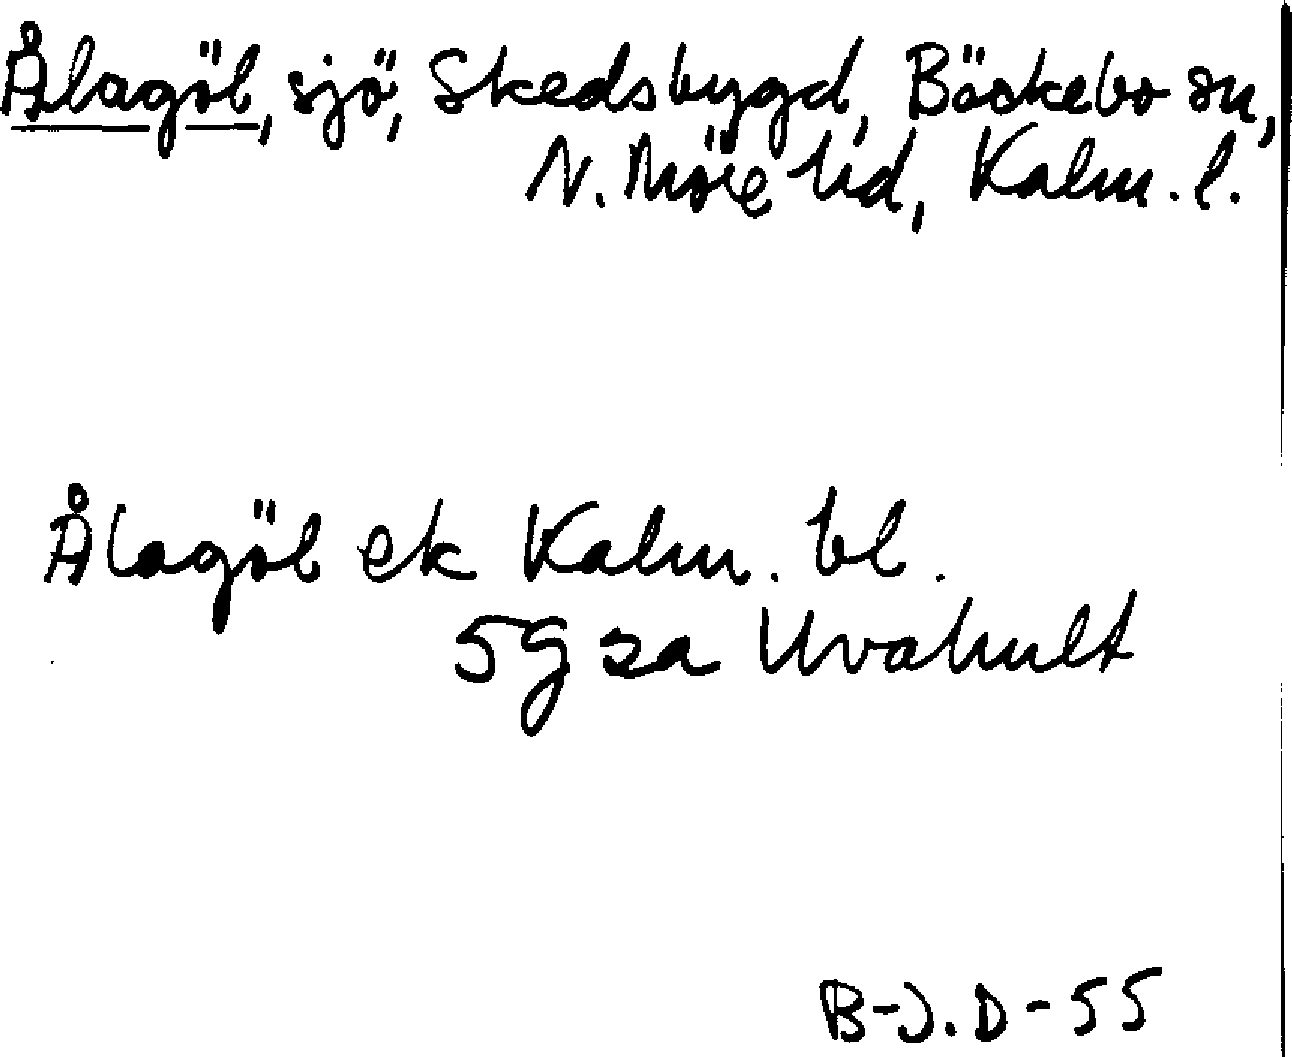 Ålagöl, sjö, Skedsbygd, Bäckebo sn,
N. Möre hd, Kalm. l.
Ålagöl ek Kalm. bl.
5g sa Uvahult
B-J. D-55